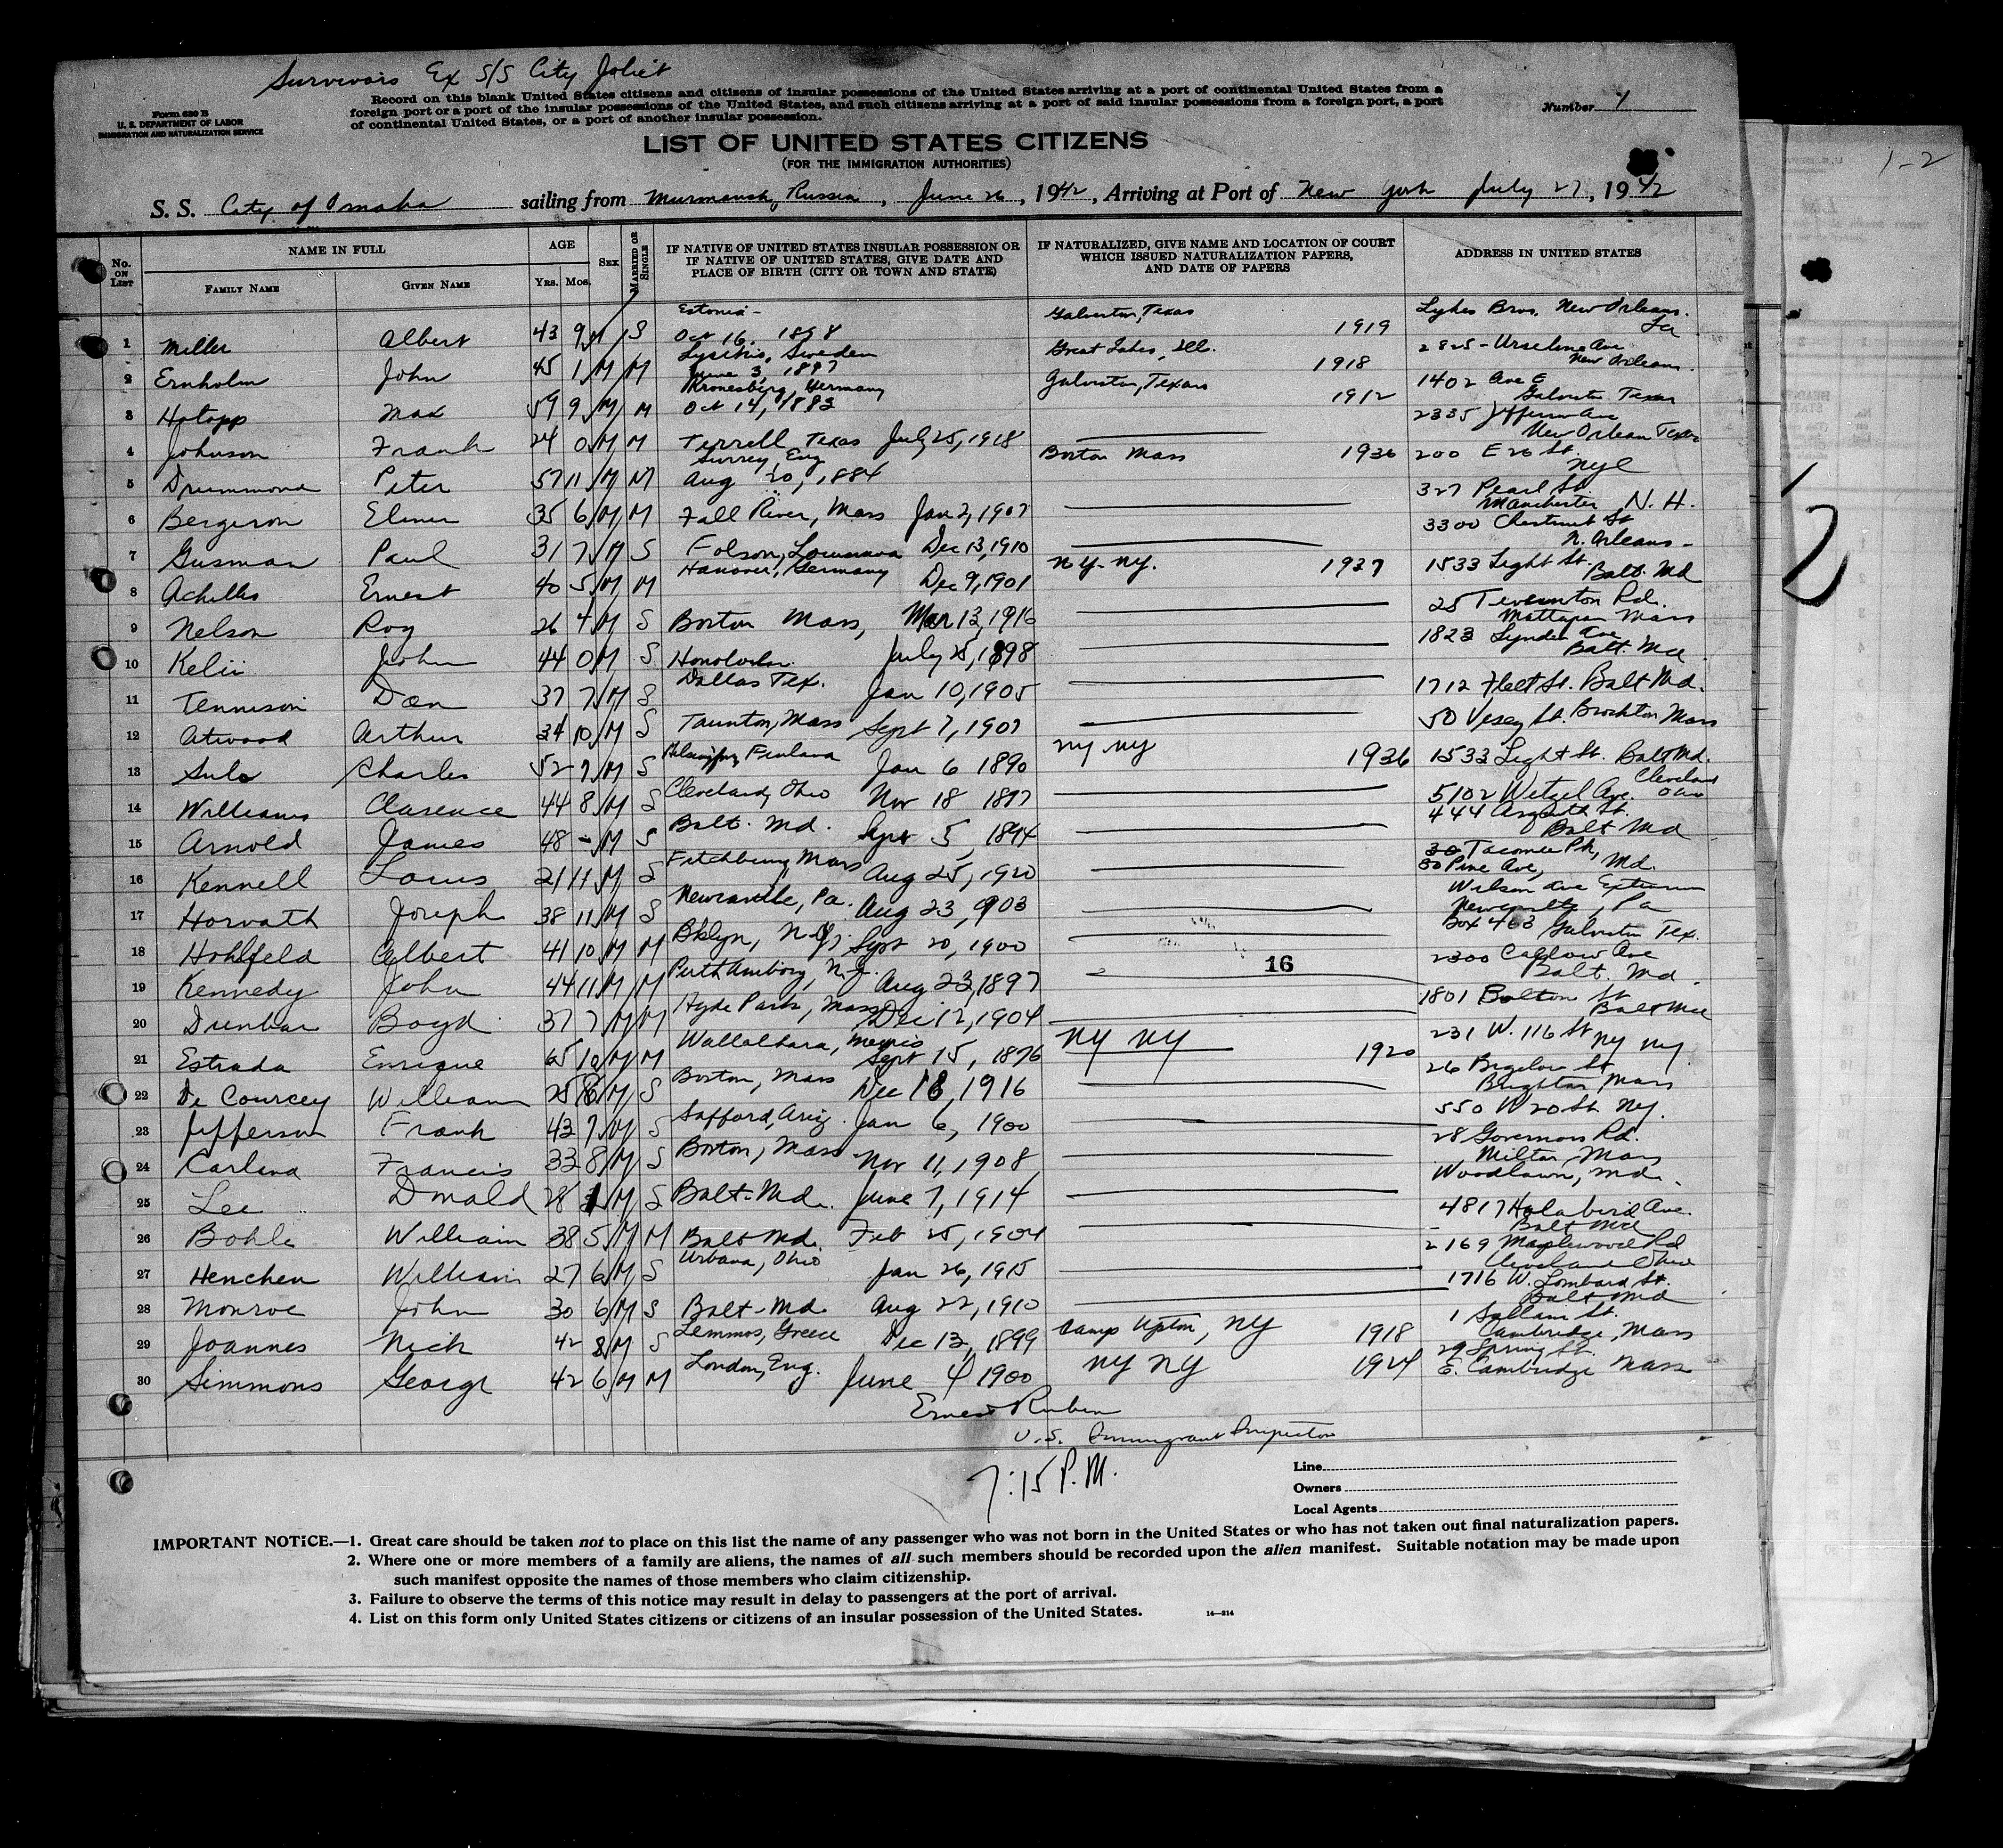 Survivors Ex S/S City Joliet
Form 630 B
U. S. DEPARTMENT OF LABOR
IMMIGRATION AND NATURALIZATION SERVICE
Record on this blank United States citizens and citizens of insular possessions of the United States arriving at a port of continental United States from a
foreign port or a port of the insular possessions of the United States, and such citizens arriving at a port of said insular possessions from a foreign port, a port
of continental United States, or a port of another insular possession.
Number 1
1-2
LIST OF UNITED STATES CITIZENS
(FOR THE IMMIGRATION AUTHORITIES)
S. S. City of Omaha sailing from Murmansk, Russia, June 26, 1942, Arriving at Port of New York July 27, 1942
No. ON LIST NAME IN FULL AGE SEX MARRIED OR SINGLE IF NATIVE OF UNITED STATES INSULAR POSSESSION OR IF NATIVE OF UNITED STATES, GIVE DATE AND PLACE OF BIRTH (CITY OR TOWN AND STATE) IF NATURALIZED, GIVE NAME AND LOCATION OF COURT WHICH ISSUED NATURALIZATION PAPERS, AND DATE OF PAPERS ADDRESS IN UNITED STATES
FAMILY NAME GIVEN NAME YRS. MOS.
1 Miller Albert 43 9 M S Estonia - Oct 16, 1898 Galveston, Texas 1919 Lykes Bros. New Orleans. La
2 Ernholm John 45 1 M M Lysekis, Sweden June 3, 1897 Great Lakes, Ill. 1918 2825 - Ursuline Ave New Orleans.
3 Hotopp Max 59 9 M M Kronesberg, Germany Oct 14, 1883 Galveston, Texas 1912 1402 Ave E Galveston Texas
4 Johnson Frank 24 0 M M Terrell, Texas July 25, 1918 2335 Jefferson Ave New Orlean Texas
5 Drummond Peter 57 11 M M Surrey, Eng Aug 20, 1884 Boston Mass 1936 200 E 26 St. NYC
6 Bergeron Elmer 35 6 M M Fall River, Mass Jan 2, 1907 327 Pearl St Manchester, N.H.
7 Gusman Paul 31 7 M S Folson, Louisiana Dec 13, 1910 3300 Chestnut St N. Orleans -
8 Achilles Ernest 40 5 M M Hanover, Germany Dec 9, 1901 N.Y. - N.Y. 1937 1533 Light St. Balt. Md
9 Nelson Roy 26 4 M S Boston Mass, Mar 13, 1916 25 Rd. Mattapan Mass
10 Kelii John 44 0 M S July 25, 1898 1823 Ave Balt. Md
11 Tennison Dan 37 7 M S Dallas Tex. Jan 10, 1905 1712 Fleet St. Balt Md.
12 Atwood Arthur 34 10 M S Taunton, Mass Sept 7, 1907 50 Vesey St. Brockton Mass
13 Sulo Charles 52 7 M S Finland Jan 6 1890 NY NY 1936 1533 Light St. Balt Md.
14 Williams Clarence 44 8 M S Cleveland, Ohio Nov 18 1897 5102 Wetzel Ave. Cleveland Ohio
15 Arnold James 48 - M S Balt. Md. Sept 5, 1894 444 St. Balt Md
16 Kennell Louis 21 11 M S Fitchburg Mass Aug 25, 1920 30 Tacoma Pk, 80 Pine Ave, Md.
17 Horvath Joseph 38 11 M S Newcastle, Pa. Aug 23, 1903 Wilson Ave Extension Newcastle, Pa
18 Hohlfeld Albert 41 10 M M Bklyn, N.Y. Sept 20, 1900 Box 463 Galveston Tex.
16
19 Kennedy John 44 11 M M Perth Amboy, N.J. Aug 23, 1897 2300 Callow Ave Balt. Md.
20 Dunbar Boyd 37 7 M M Hyde Park, Mass Dec 12, 1904 1801 Bolton St Balt Md
21 Estrada Enrique 65 10 M M Wallalhara, Mexico Sept 15, 1876 NY NY 1920 231 W. 116 St NY NY.
22 De Courcey William 25 M S Boston, Mass Dec 18, 1916 26 Bigelow St Brighton, Mass
23 Jefferson Frank 42 7 M S Safford, Ariz. Jan 6, 1900 550 W 20 St NY.
24 Francis 33 8 M S Boston, Mass Nov 11, 1908 28 Governors Rd. Milton, Mass
25 Lee Donald 28 1 M S Balt. Md. June 7, 1914 Woodlawn, Md.
26 Bohle William 38 5 M M Balt Md. Feb 25, 1904 4817 Holabird Ave. Balt Md
27 Henchen William 27 6 M S Urbana, Ohio Jan 26, 1915 2169 Maplewood Rd Cleveland Ohio
28 Monroe John 30 6 M S Balt - Md. Aug 22, 1910 1716 W. Lombard St. Balt Md
29 Joannes Nick 42 8 M S Lemmos, Greece Dec 13, 1899 Camp Upton, NY 1918 1 St. Cambridge, Mass
30 Simmons George 42 6 M M London, Eng. June 4 1900 NY NY 1924 29 Spring St. E. Cambridge Mass
Ernest Rubin
U.S. Immigrant Inspector
7:15 P.M.
Line
Owners
Local Agents
IMPORTANT NOTICE.—1. Great care should be taken not to place on this list the name of any passenger who was not born in the United States or who has not taken out final naturalization papers.
2. Where one or more members of a family are aliens, the names of all such members should be recorded upon the alien manifest. Suitable notation may be made upon
such manifest opposite the names of those members who claim citizenship.
3. Failure to observe the terms of this notice may result in delay to passengers at the port of arrival.
4. List on this form only United States citizens or citizens of an insular possession of the United States.
14—214
2